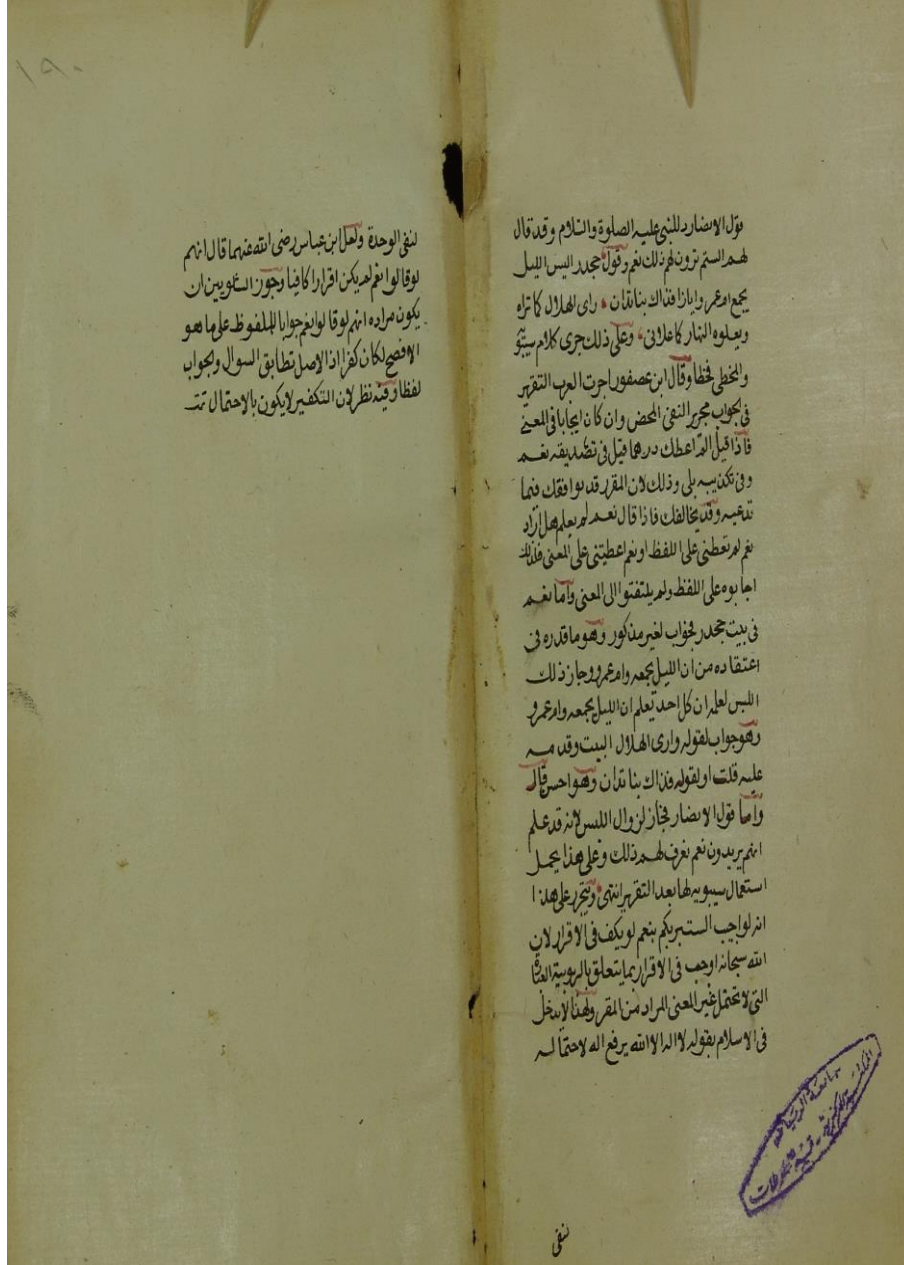 قول الانصار رد للنبى عليه الصلوة والسلام وقد قال
لهم الستم ترون لهم ذلك نعم وقول جحدر اليس الليل
يجمع ام عمرو ايانا فذاك بنا تدان راى الهلال كما تراه
ويعلوه النهار كما علانى وعلى ذلك جرى كلام سيبو
والمخطى فخطا وقال ابن عصفور اجرت العرب التقرير
فى الجواب مجرى النفى المحض وان كان ايجابا فى المعنى
فاذا قيل الم اعطك درهما قيل فى تصديقه نعم
وفى تكذيبه بلى وذلك لان المقرر قد يوافقك فيما
تدعيه وقد يخالفك فاذا قال نعم لم يعلم هل اراد
نعم لم تعطنى على اللفظ او نعم اعطيتنى على المعنى فلذلك
اجابوه على اللفظ ولم يلتفتوا الى المعنى واما نعم
فى بيت جحدر فجواب لغير مذكور وهو ما قدره فى
اعتقاده من ان الليل يجمعه وام عمرو وجاز ذلك
اللبس لعلمه ان كل احد يعلم ان الليل يجمعه وام عمرو
وهو جواب لقوله وارى الهلال البيت وقدمه
عليه قلت او لقوله فذاك بنا تدان وهو احسن قال
واما قول الانصار فجاز لزوال اللبس لانه قد علم
انهم يريدون نعم نعرف لهم ذلك وعلى هذا يحمل
استعمال سيبويه لها بعد التقرير انتهى ويتحرر على هذا
انه لو اجيب الست بربكم بنعم لو يكف فى الاقرار لان
الله سبحانه اوجب فى الاقرار بما يتعلق بالربوبية العبارة
التى لا تحتمل غير المعنى المراد من المقر ولهذا لا يدخل
فى الاسلام بقوله لا اله الا الله برفع اله لاحتماله
نفى
١٩٠
لنفى الوحدة ولعل ابن عباس رضى الله عنهما قال انهم
لو قالوا نعم لم يكن اقرارا كافيا وجوز الشلوبين ان
يكون مراده انهم لو قالوا نعم جوابا للملفوظ على ما هو
الافصح لكان كفرا اذ الاصل تطابق السوال والجواب
لفظا وفيه نظر لان التكفير لا يكون بالاحتمال تمت
جامعة الرياض